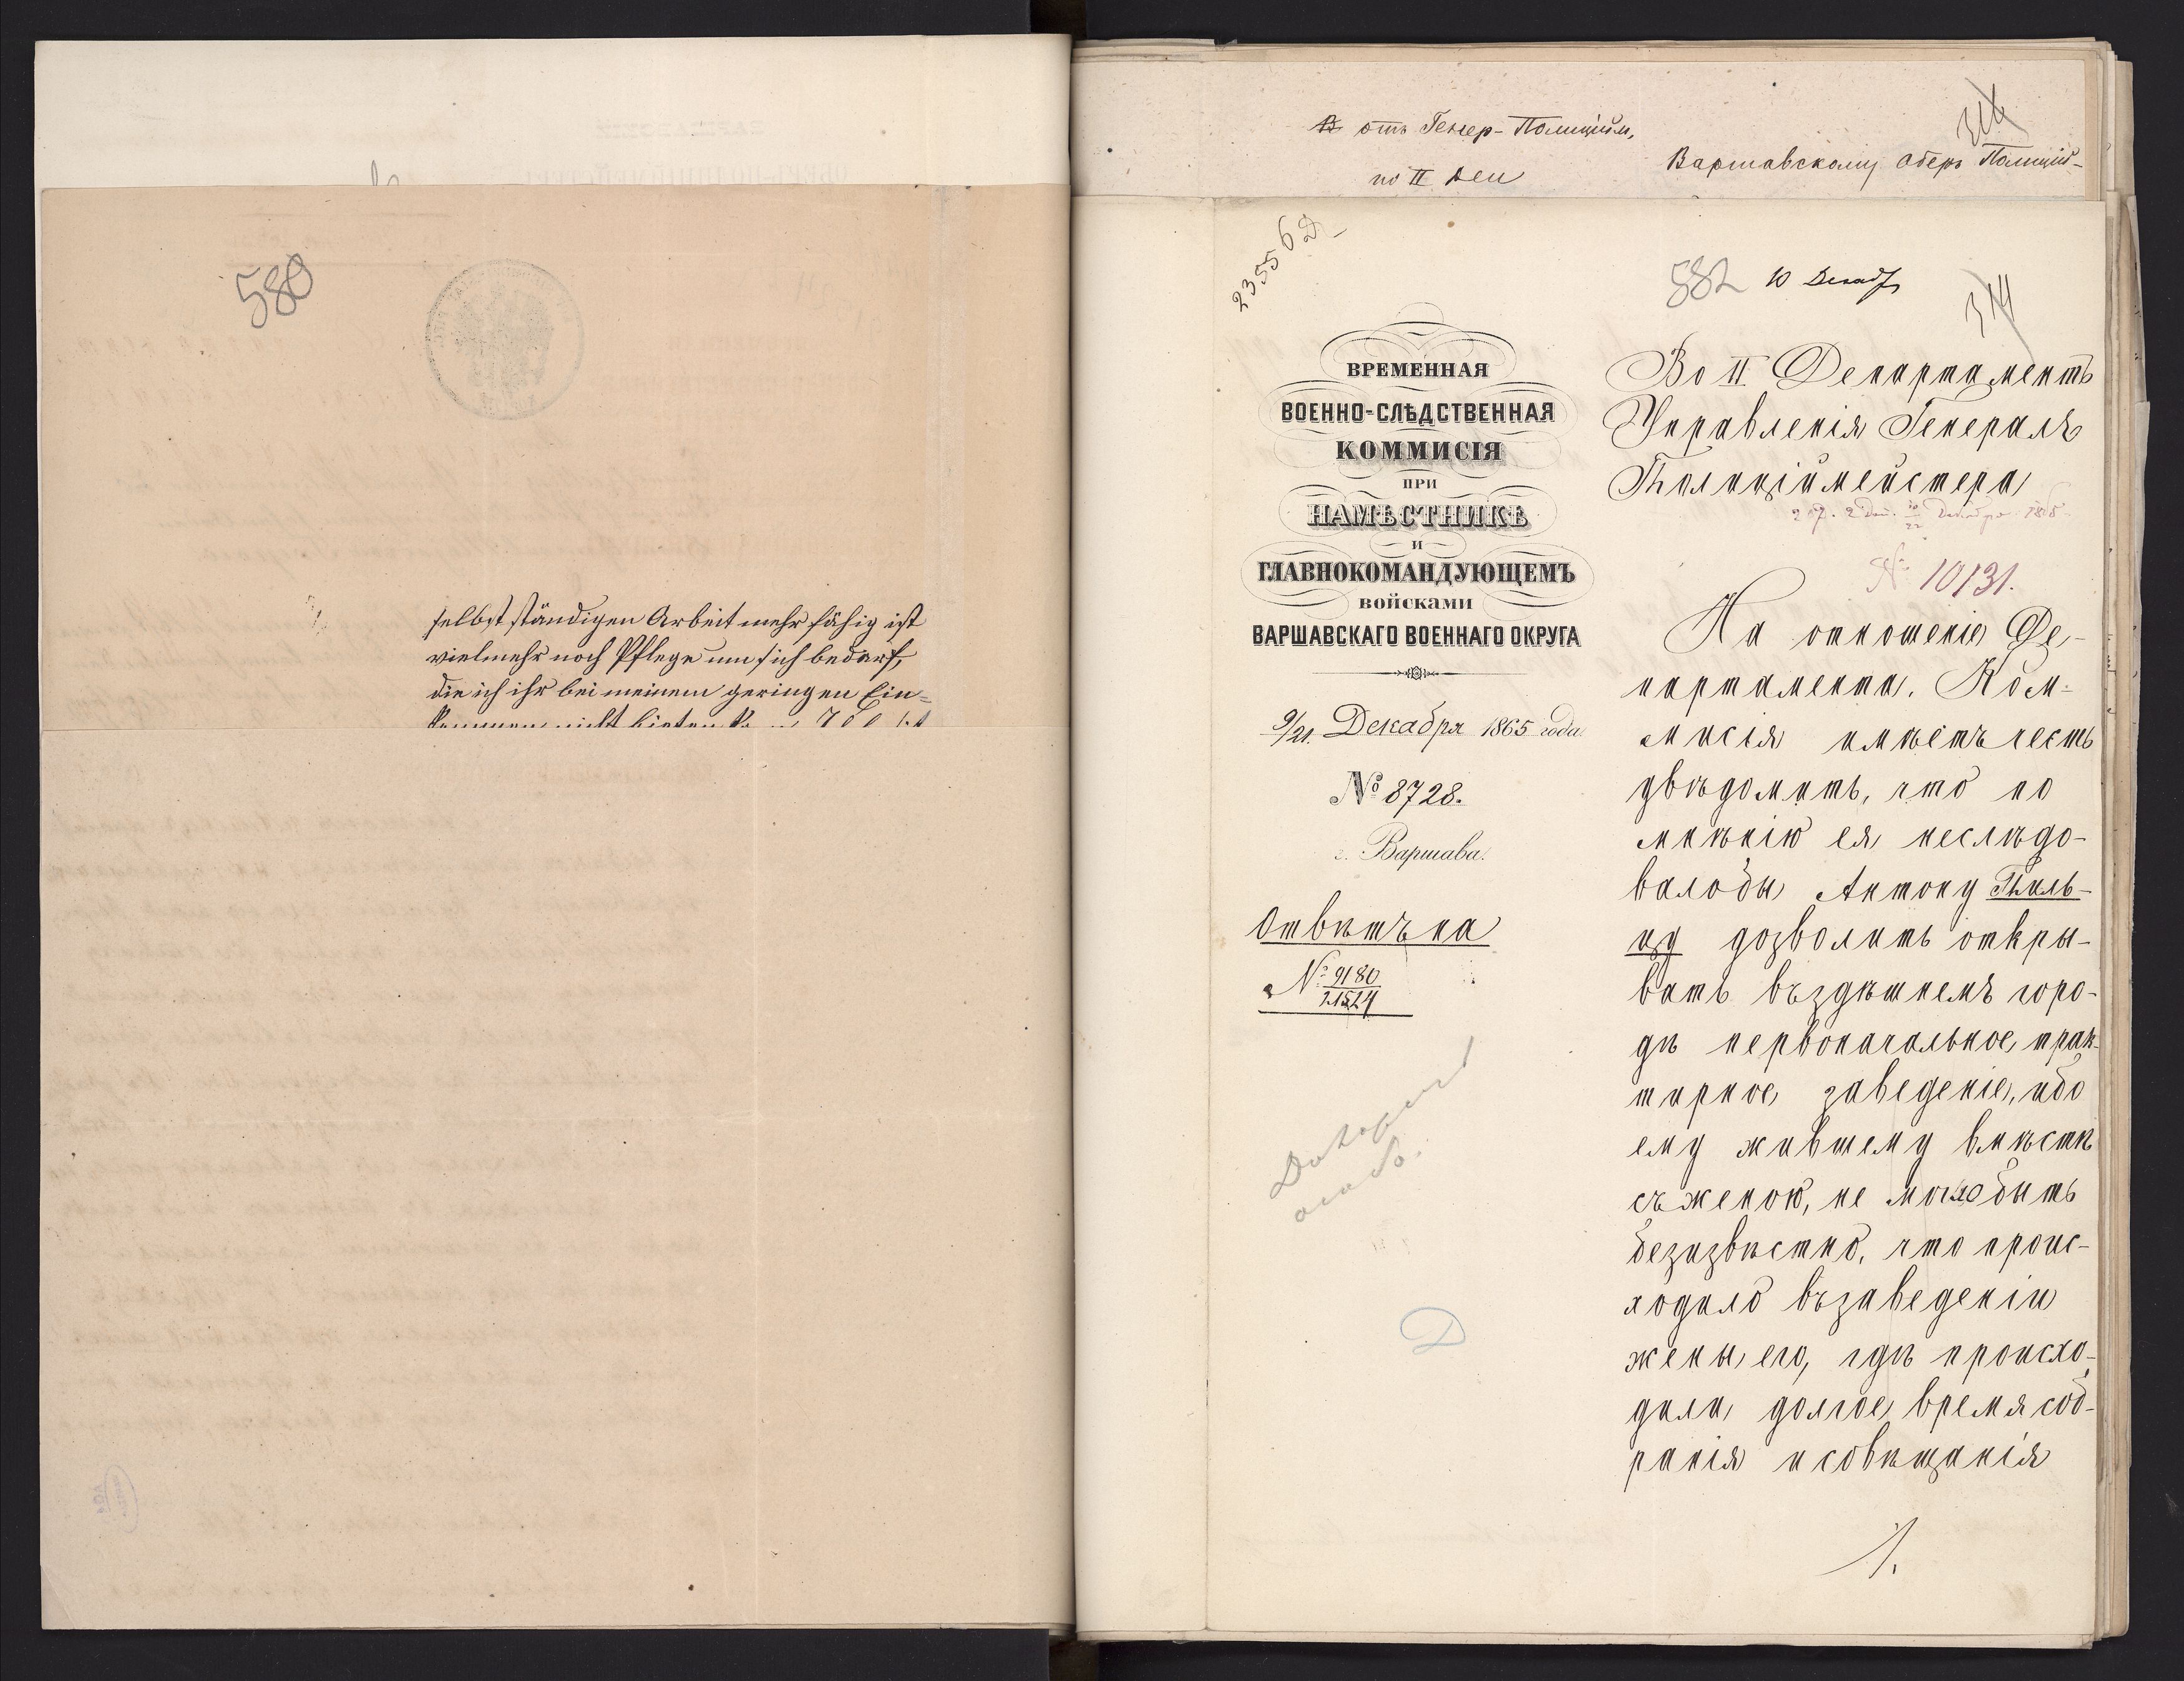 580
selbstständigen Arbeit mehr fähig ist
vielmehr noch Pflege um sich bedarf,
die ich ihr bei meinem geringen Ein-
отъ Генер-Полицiйм,
по II Деп
Варшавскому Оберъ Полицiй-
23556
582 10 Декабр
314
ВРЕМЕННАЯ
ВОЕННО-СЛѢДСТВЕННАЯ
КОММИСІЯ
ПРИ
НАМѢСТНИКѢ
И
ГЛАВНОКОМАНДУЮЩЕМЪ
ВОЙСКАМИ
ВАРШАВСКАГО ВОЕННАГО ОКРУГА
9/21. Декабря 1865 года
№ 8728.
г. Варшава.
Отвѣтъ на
№ 9180
21524
Д
Во II Департаментъ
Управленія Генералъ
Полиціймейстера
№ 10131.
На отношеніе Де-
партамента. Ком-
мисія имѣетъ честь
увѣдомить, что по
мнѣнію ея неслѣдо-
валобы Антону Пиль-
цу дозволить откры-
вать въздѣшнемъ горо-
дѣ первоначальное, трак-
тирное заведеніе, ибо
ему жившему вмѣстѣ
съ женою, не могло быть
безизвѣстно, что проис-
ходило възаведеніи
жены его, гдѣ происхо-
дили долгое время соб-
ранія и совѣщанія
1.